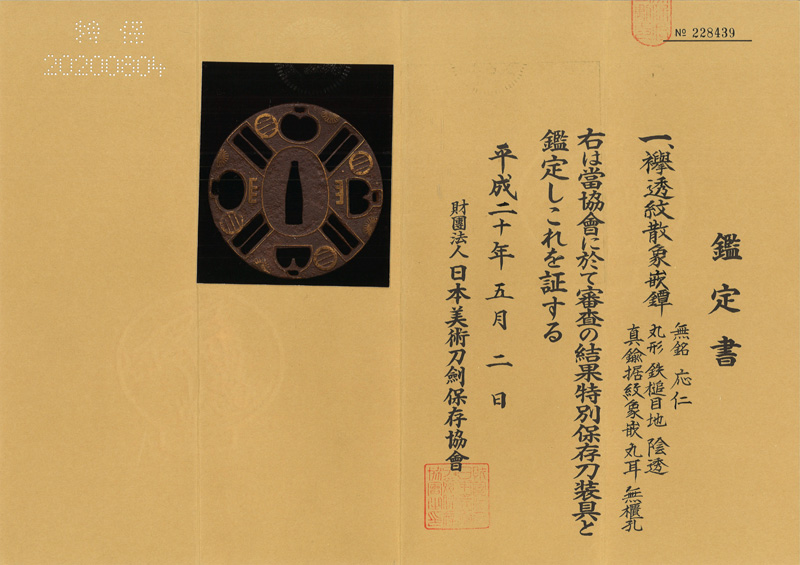 № 228439
鑑定書
一、襷透紋散象嵌鐔
無銘 応仁
丸形 鉄槌目地 陰透
真鍮据紋象嵌 丸耳 無櫃孔
右は當協會に於て審査の結果特別保存刀装具と
鑑定しこれを証する
平成二十年五月二日
財團法人日本美術刀劍保存協會
特保
20200804